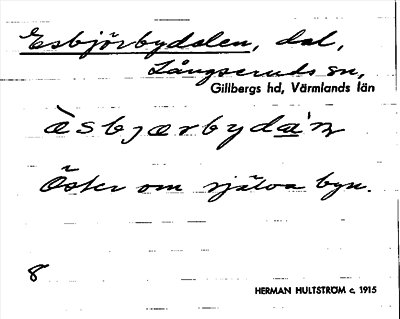 Esbjörbydalen, dal,
Långseruds sn,
Gillbergs hd, Värmlands län
Öster om själva byn.
8
HERMAN HULTSTRÖM c. 1915